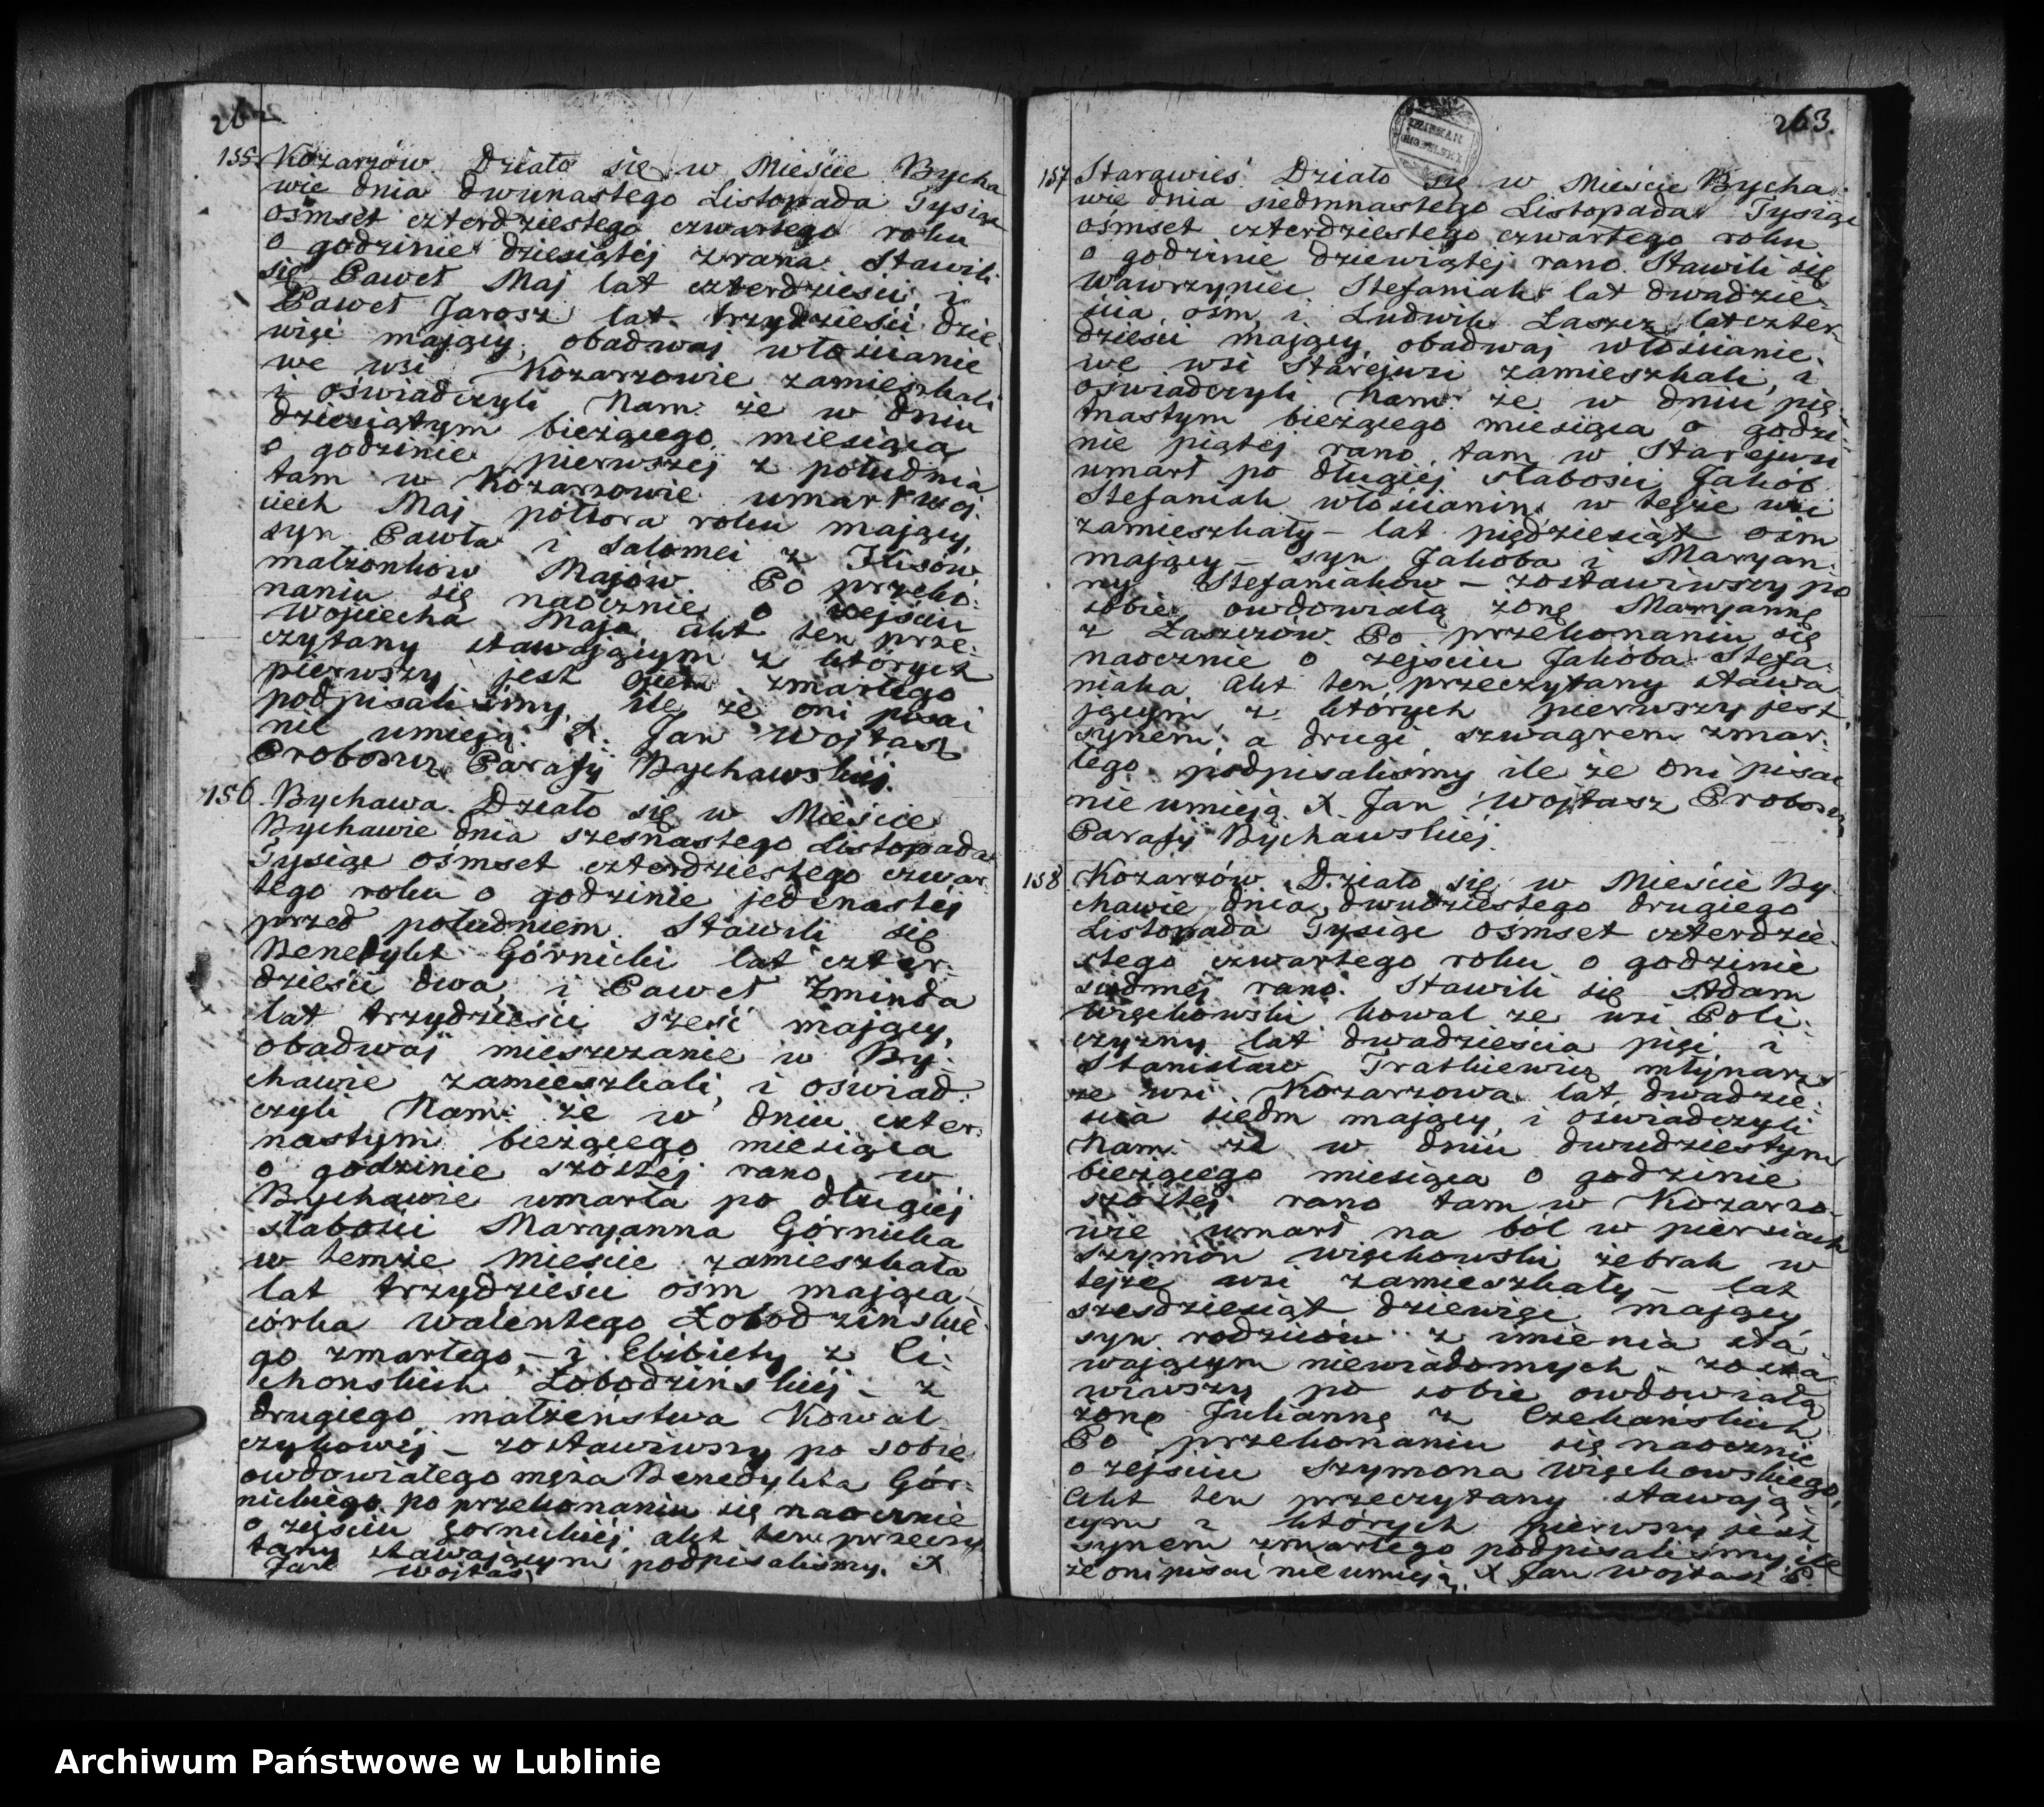 262
155. Kozarzów. Działo się w Mieście Bycha
wie dnia dwunastego Listopada Tysiąc
ośmset czterdziestego czwartego roku
o godzinie dziesiątej zrana. Stawili
się Paweł Maj lat czterdzieści, i
Paweł Jarosz lat trzydzieści dzie-
więć mający, obadwaj włościanie
we wsi Kozarzowie zamieszkali
i oświadczyli Nam: że w dniu
dziesiątym bieżącego miesiąca
o godzinie pierwszej z południa
tam w Kozarzowie umarł Woj-
ciech Maj półtora roku mający,
syn Pawła i Salomei z Flisów
małżonków Majów. Po przeko-
naniu się naocznie o zejściu
Wojciecha Maja akt ten prze-
czytany stawającym z których
pierwszy jest Ojcem zmarłego
podpisaliśmy, ile że oni pisać
nie umieją. X. Jan Wojtasz
Proboszcz Parafij Bychawskiej.
156. Bychawa. Działo się w Mieście
Bychawie dnia szesnastego Listopada
Tysiąc ośmset czterdziestego czwar-
tego roku o godzinie jedenastej
przed południem. Stawili się
Benedykt Górnicki lat czter-
dzieści dwa, i Paweł Żminda
lat trzydzieści sześć mający,
obadwaj mieszczanie w By-
chawie zamieszkali, i oświad-
czyli Nam: że w dniu czter-
nastym bieżącego miesiąca
o godzinie szóstej rano, w
Bychawie umarła po długiej
słabości Maryanna Górnicka
w temże Mieście zamieszkała
lat trzydzieści ośm mająca-
córka Walentego Łobodzińskie-
go zmarłego,- i Elżbiety z Ci-
chońskich Łobodzińskiej - z
drugiego małżeństwa Kowal-
czykowej - zostawiwszy po sobie
owdowiałego męża Benedykta Gór-
nickiego. po przekonaniu się naocznie
o zejściu Górnickiej, akt ten przeczy
tany stawającym podpisaliśmy. X
Jan Wojtasz
263.
157 Starawieś. Działo się w Mieście Bycha-
wie dnia siedmnastego Listopada Tysiąc
ośmset czterdziestego czwartego roku
o godzinie dziewiątej rano. Stawili się
Wawrzyniec Stefaniak lat dwadzie-
ścia ośm, i Ludwik Łaszcz lat czter-
dzieści mający, obadwaj włościanie
we wsi Starejwsi zamieszkali, i
oświadczyli Nam: że w dniu pię-
tnastym bieżącego miesiąca o godzi-
nie piątej rano, tam w Starejwsi
umarł po długiej słabości Jakób
Stefaniak włościanin, w tejże wsi
zamieszkały - lat pięćdziesiąt ośm
mający - syn Jakóba i Maryan-
ny Stefaniaków - zostawiwszy po
sobie owdowiałą żonę Maryannę
z Łaszczów. Po przekonaniu się
naocznie o zejściu Jakóba Stefa-
niaka, akt ten przeczytany stawa
jącym, z których pierwszy jest
synem, a drugi szwagrem zmar-
łego podpisaliśmy ile że oni pisać
nie umieją. X. Jan Wojtasz Proboszcz
Parafij Bychawskiej.
158 Kozarzów. Działo się w Mieście By-
chawie dnia dwudziestego drugiego
Listopada Tysiąc ośmset czterdzie-
stego czwartego roku o godzinie
siódmej rano. Stawili się Adam
Więckowski kowal ze wsi Poli-
czyzny lat dwadzieścia pięć, i
Stanisław Tratkiewicz młynarz
ze wsi Kozarzowa lat dwadzie-
ścia siedm mający, i oświadczyli
Nam: że w dniu dwudziestym
bieżącego miesiąca o godzinie
szóstej rano tam w Kozarzo-
wie umarł na ból w piersiach
Szymon Więckowski żebrak w
tejże wsi zamieszkały - lat
sześćdziesiąt dziewięć mający
syn rodziców z imienia sta
wającym niewiadomych - zosta
wiwszy po sobie owdowiałą
żonę Juliannę z Czekańskich
Po przekonaniu się naocznie
o zejściu Szymona Więckowskiego,
akt ten przeczytany stawają-
cym z których pierwszy jest
synem zmarłego podpisaliśmy, ile
że oni pisać nie umieją. X. Jan Wojtasz P.
Archiwum Państwowe w Lublinie